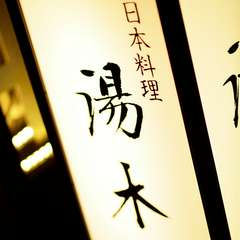 日本料理
湯木